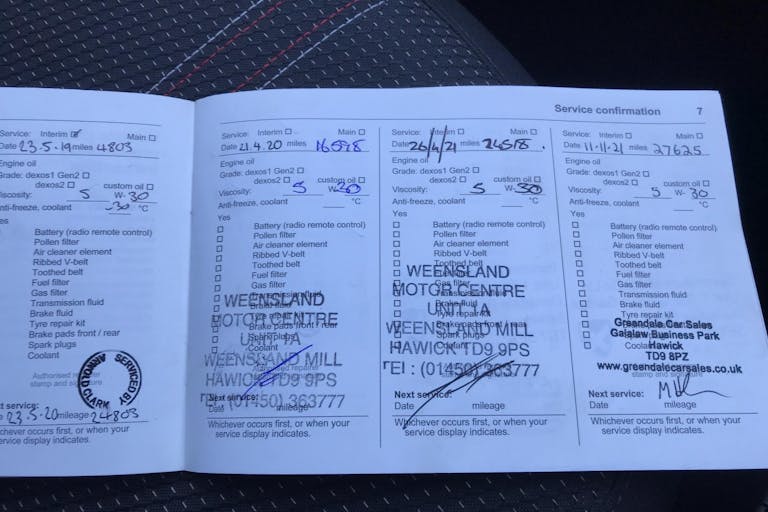 Service confirmation 7
Service: Interim Main
Date 23.5.19 miles 4803
Engine oil
Grade: dexos1 Gen2
dexos2 custom oil
Viscosity: 5 W- 30
Anti-freeze, coolant -30 °C
Yes
Battery (radio remote control)
Pollen filter
Air cleaner element
Ribbed V-belt
Toothed belt
Fuel filter
Gas filter
Transmission fluid
Brake fluid
Tyre repair kit
Brake pads front / rear
Spark plugs
Coolant
Authorised
stamp and signature
SERVICED BY
ARNOLD CLARK
Next service:
23.5.20 mileage 24803
Whichever occurs first, or when your
service display indicates.
Service: Interim Main
Date 21.4.20 miles 16598
Engine oil
Grade: dexos1 Gen2
dexos2 custom oil
Viscosity: 5 W-30
Anti-freeze, coolant °C
Yes
Battery (radio remote control)
Pollen filter
Air cleaner element
Ribbed V-belt
Toothed belt
Fuel filter
Gas filter
Transmission fluid
Brake fluid
Tyre repair kit
Brake pads front / rear
Spark plugs
Coolant
WEENSLAND
MOTOR CENTRE
UNIT 1A
WEENSLAND MILL
HAWICK TD9 9PS
TEL: (01450) 363777
Next service:
Date mileage
Whichever occurs first, or when your
service display indicates.
Service: Interim Main
Date 26/4/21 miles 24518
Engine oil
Grade: dexos1 Gen2
dexos2 custom oil
Viscosity: 5 W-30
Anti-freeze, coolant °C
Yes
Battery (radio remote control)
Pollen filter
Air cleaner element
Ribbed V-belt
Toothed belt
Fuel filter
Gas filter
Transmission fluid
Brake fluid
Tyre repair kit
Brake pads front / rear
Spark plugs
Coolant
WEENSLAND
MOTOR CENTRE
UNIT 1A
WEENSLAND MILL
HAWICK TD9 9PS
TEL: (01450) 363777
Next service:
Date mileage
Whichever occurs first, or when your
service display indicates.
Service: Interim Main
Date 11-11-21 miles 27625
Engine oil
Grade: dexos1 Gen2
dexos2 custom oil
Viscosity: 5 W- 30
Anti-freeze, coolant °C
Yes
Battery (radio remote control)
Pollen filter
Air cleaner element
Ribbed V-belt
Toothed belt
Fuel filter
Gas filter
Transmission fluid
Brake fluid
Tyre repair kit
Brake pads front / rear
Spark plugs
Coolant
Greendale Car Sales
Galalaw Business Park
Hawick
TD9 8PZ
www.greendalecarsales.co.uk
stamp and signature
Next service:
Date mileage
Whichever occurs first, or when your
service display indicates.